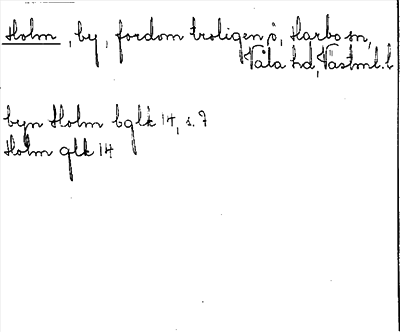 Holm, by, fordom troligen ö, Harbo sn,
Våla hd, Västml. l.
byn Holm bglk 14, s. 7
Holm glk 14